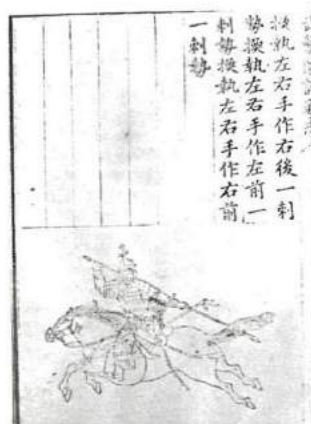 換執左右手作右後一刺
勢換執左右手作左前一
刺勢換執左右手作右前
一刺勢